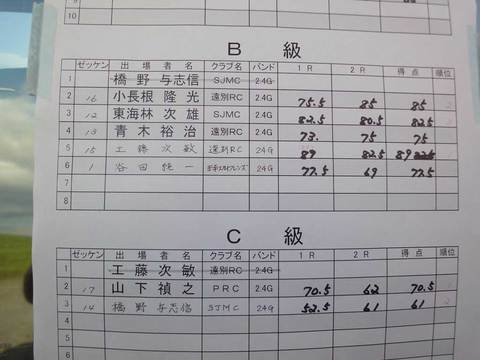 9
10
B 級
ゼッケン 出場者名 クラブ名 バンド 1R 2R 得点 順位
1 橋野 与志信 SJMC 2.4G
2 16 小長根 隆光 遠別RC 2.4G 75.5 85 85
3 12 東海林 次雄 SJMC 2.4G 82.5 80.5 82.5
4 13 青木 裕治 遠別RC 2.4G 73. 75 75
5 15 工藤 次敏 遠別RC 2.4G 89 82.5 89
6 1 谷田 純一 2.4G 77.5 69 77.5
7
8
C 級
ゼッケン 出場者名 クラブ名 バンド 1R 2R 得点 順位
1 工藤 次敏 遠別RC 2.4G
2 17 山下 禎之 PRC 2.4G 70.5 62 70.5
3 14 橋野 与志信 SJMC 2.4G 52.5 61 61
4
5
6